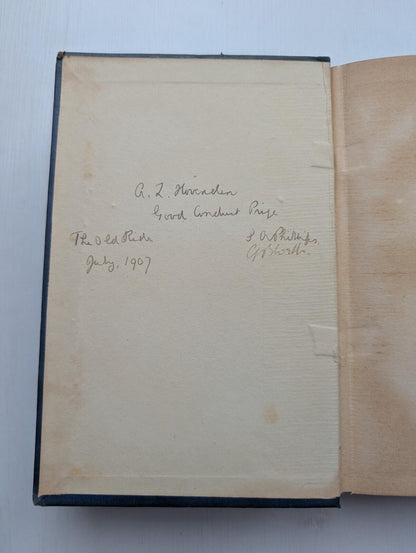 A. L. Hovenden
Good Conduct Prize
The Old Ride
July, 1907
A Phillips.